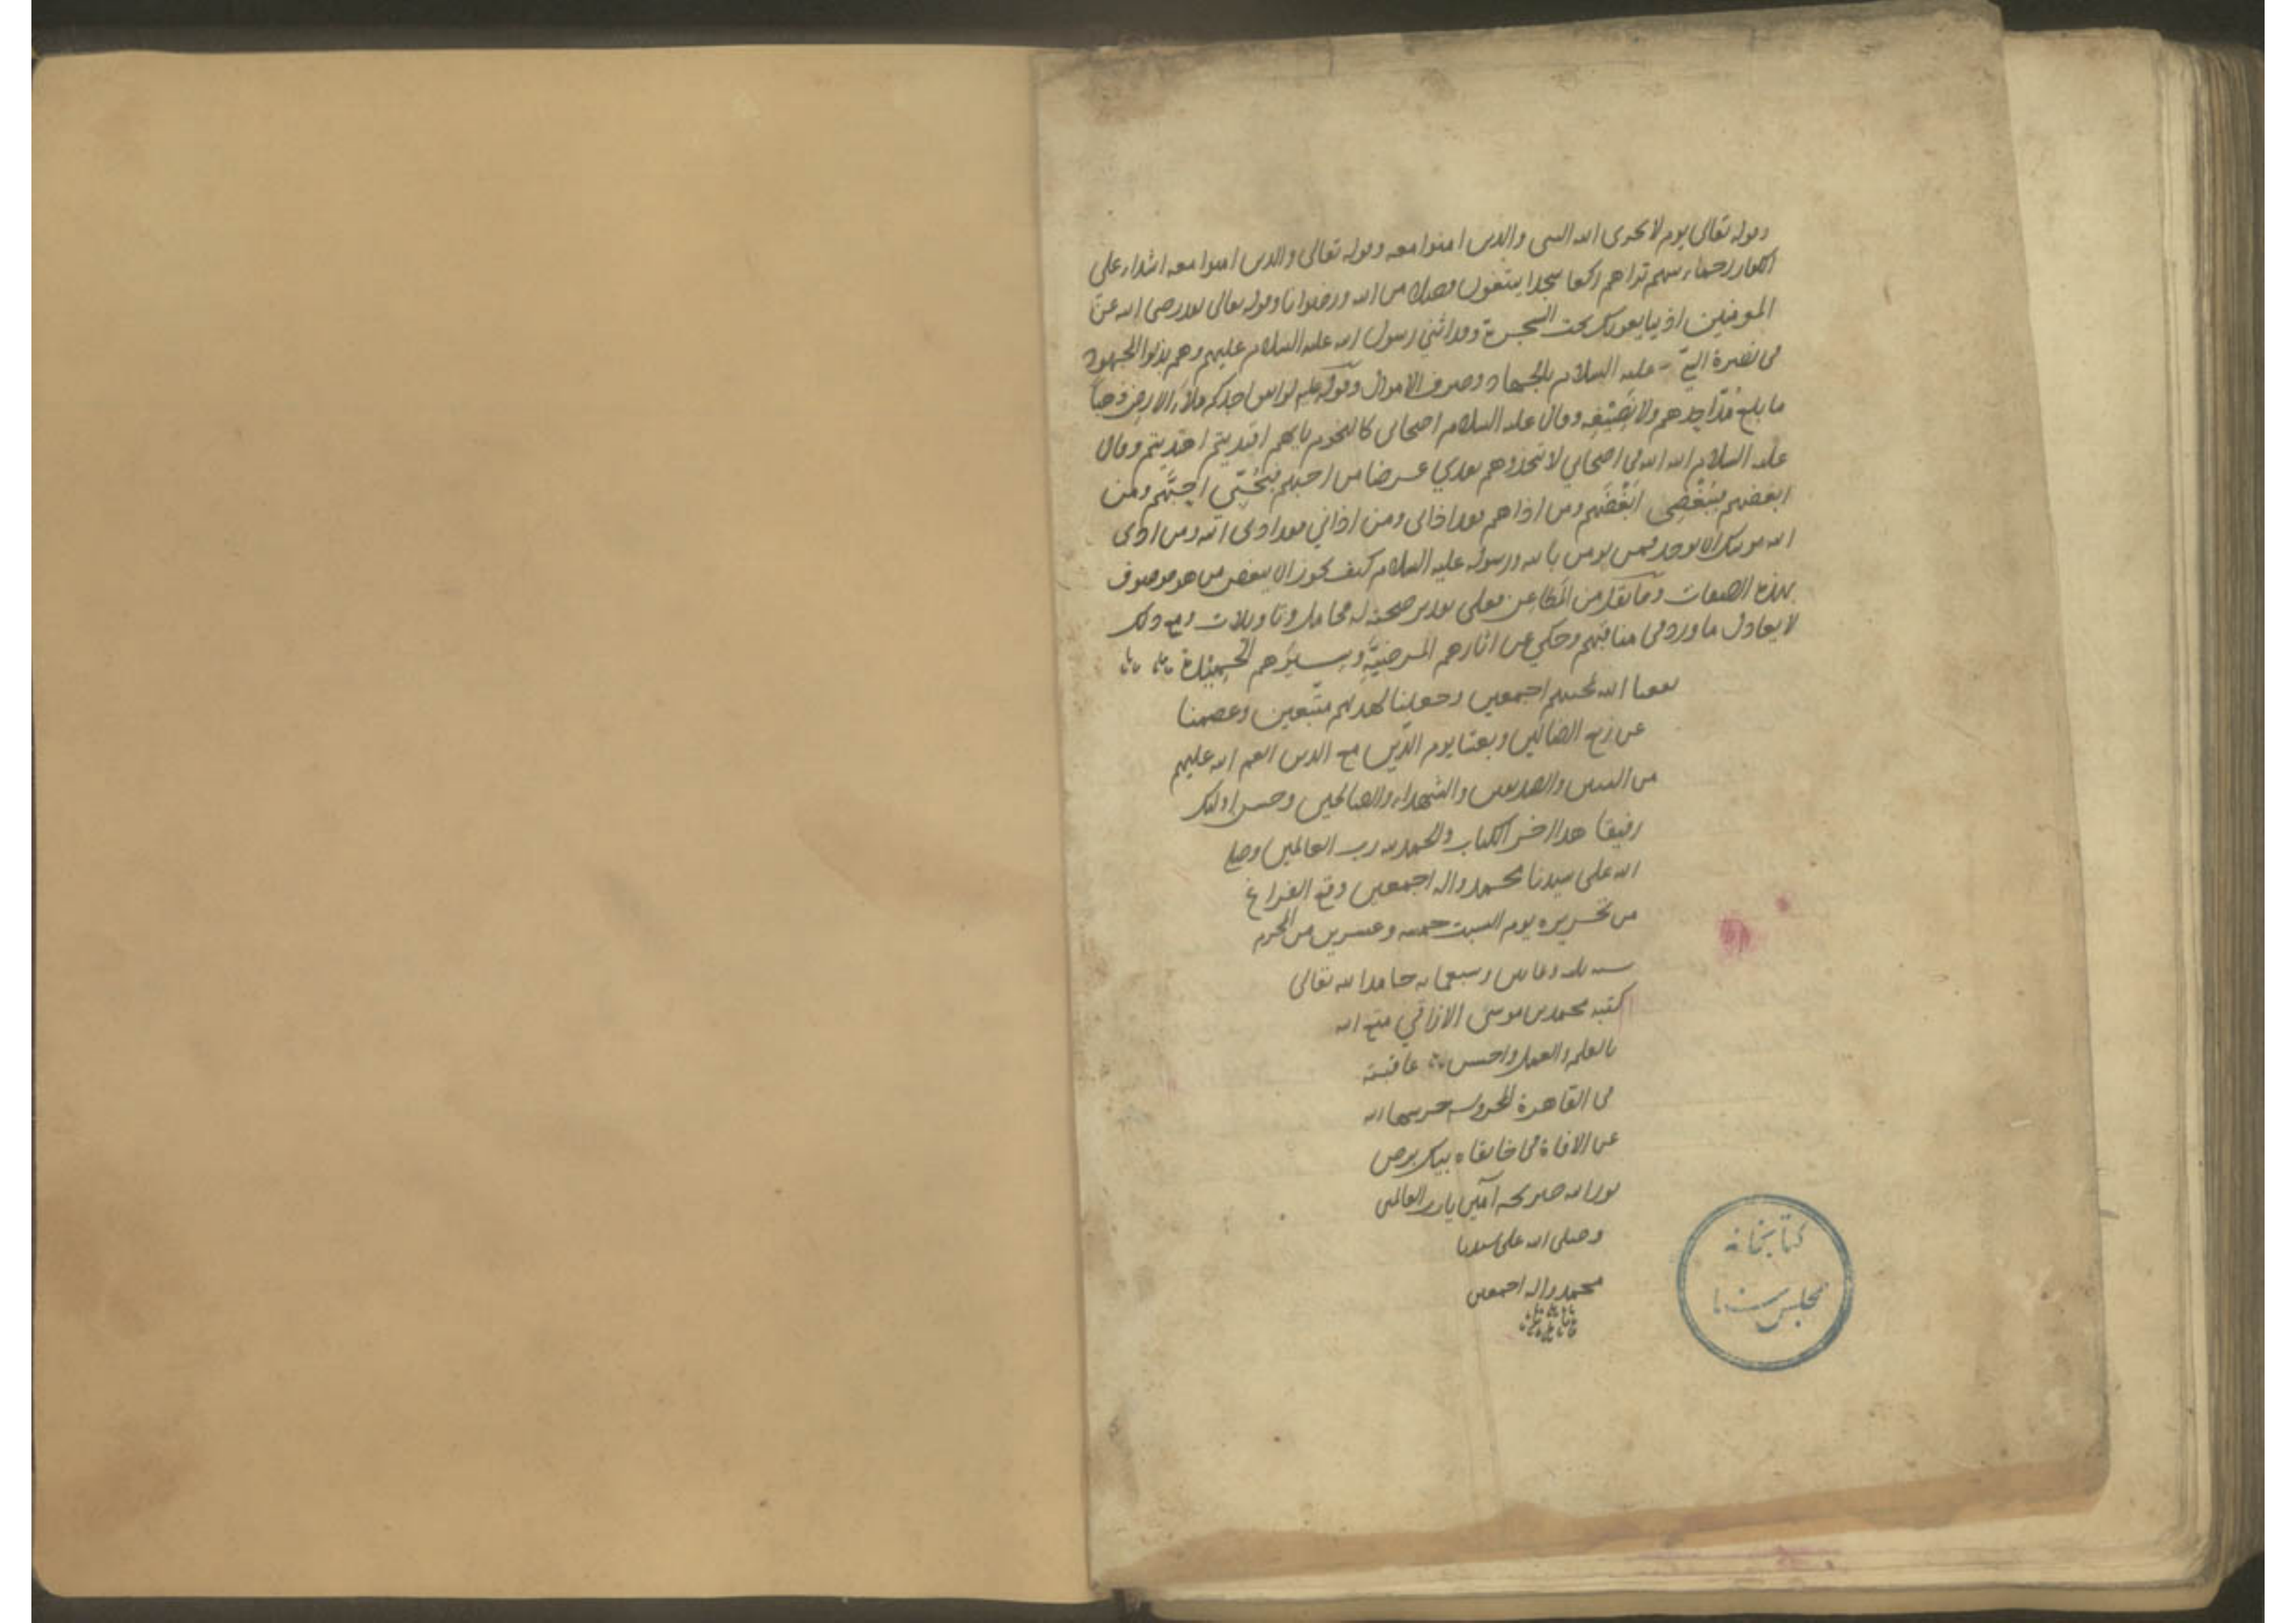 وقوله تعالى يوم لا يخزى الله النبى والذين امنوا معه وقوله تعالى والذين امنوا معه اشداء على
الكفار رحماء بينهم تراهم ركعا سجدا يبتغون فضلا من الله ورضوانا وقوله تعالى لقد رضى الله عن
المومنين اذ يبايعونك تحت الشجرة وقد اثنى رسول الله عليه السلام عليهم وهم بذلوا المجهود
فى نصرة النبى عليه السلام بالجهاد وصرف الاموال وقوله عليه لو انفق احدكم ملأ الارض ذهبا
ما بلغ مد احدهم ولا نصيفه وقال عليه السلام اصحابى كالنجوم بايهم اقتديتم اهتديتم وقال
عليه السلام الله الله فى اصحابي لا تتخذوهم بعدي غرضا من احبهم فبحبي احبهم ومن
ابغضهم فببغضى ابغضهم ومن اذاهم فقد اذانى ومن اذاني فقد اذى الله ومن اذى
الله يوشك ان يوخذ فمن يومن بالله ورسوله عليه السلام كيف يجوز ان يبغض من هو موصوف
بهذه الصفات وما نقل من المطاعن فعلى تقدير صحته له محامل وتاويلات ومع ذلك
لا يعادل ما ورد فى مناقبهم وحكي عن اثارهم المرضية وسيرهم الحميدة
نفعنا الله بمحبتهم اجمعين وجعلنا لهديهم متبعين وعصمنا
عن زيغ الضالين وبعثنا يوم الدين مع الذين انعم الله عليهم
من النبيين والصديقين والشهداء والصالحين وحسن اولئك
رفيقا هذا اخر الكتاب والحمد لله رب العالمين وصلى
الله على سيدنا محمد واله اجمعين وقع الفراغ
من تحريره يوم السبت خمسه وعشرين من المحرم
سنه وسبعمايه حامدا لله تعالى
كتبه محمد بن موسى الازاقي متع الله
بالعلم والعمل واحسن عاقبته
فى القاهرة المحروسه حرسها الله
عن الافاة فى خانقاه
نور الله ضريحه آمين يا رب العالمين
وصلى الله على سيدنا
محمد واله اجمعين
كتابخانه
مجلس سنا